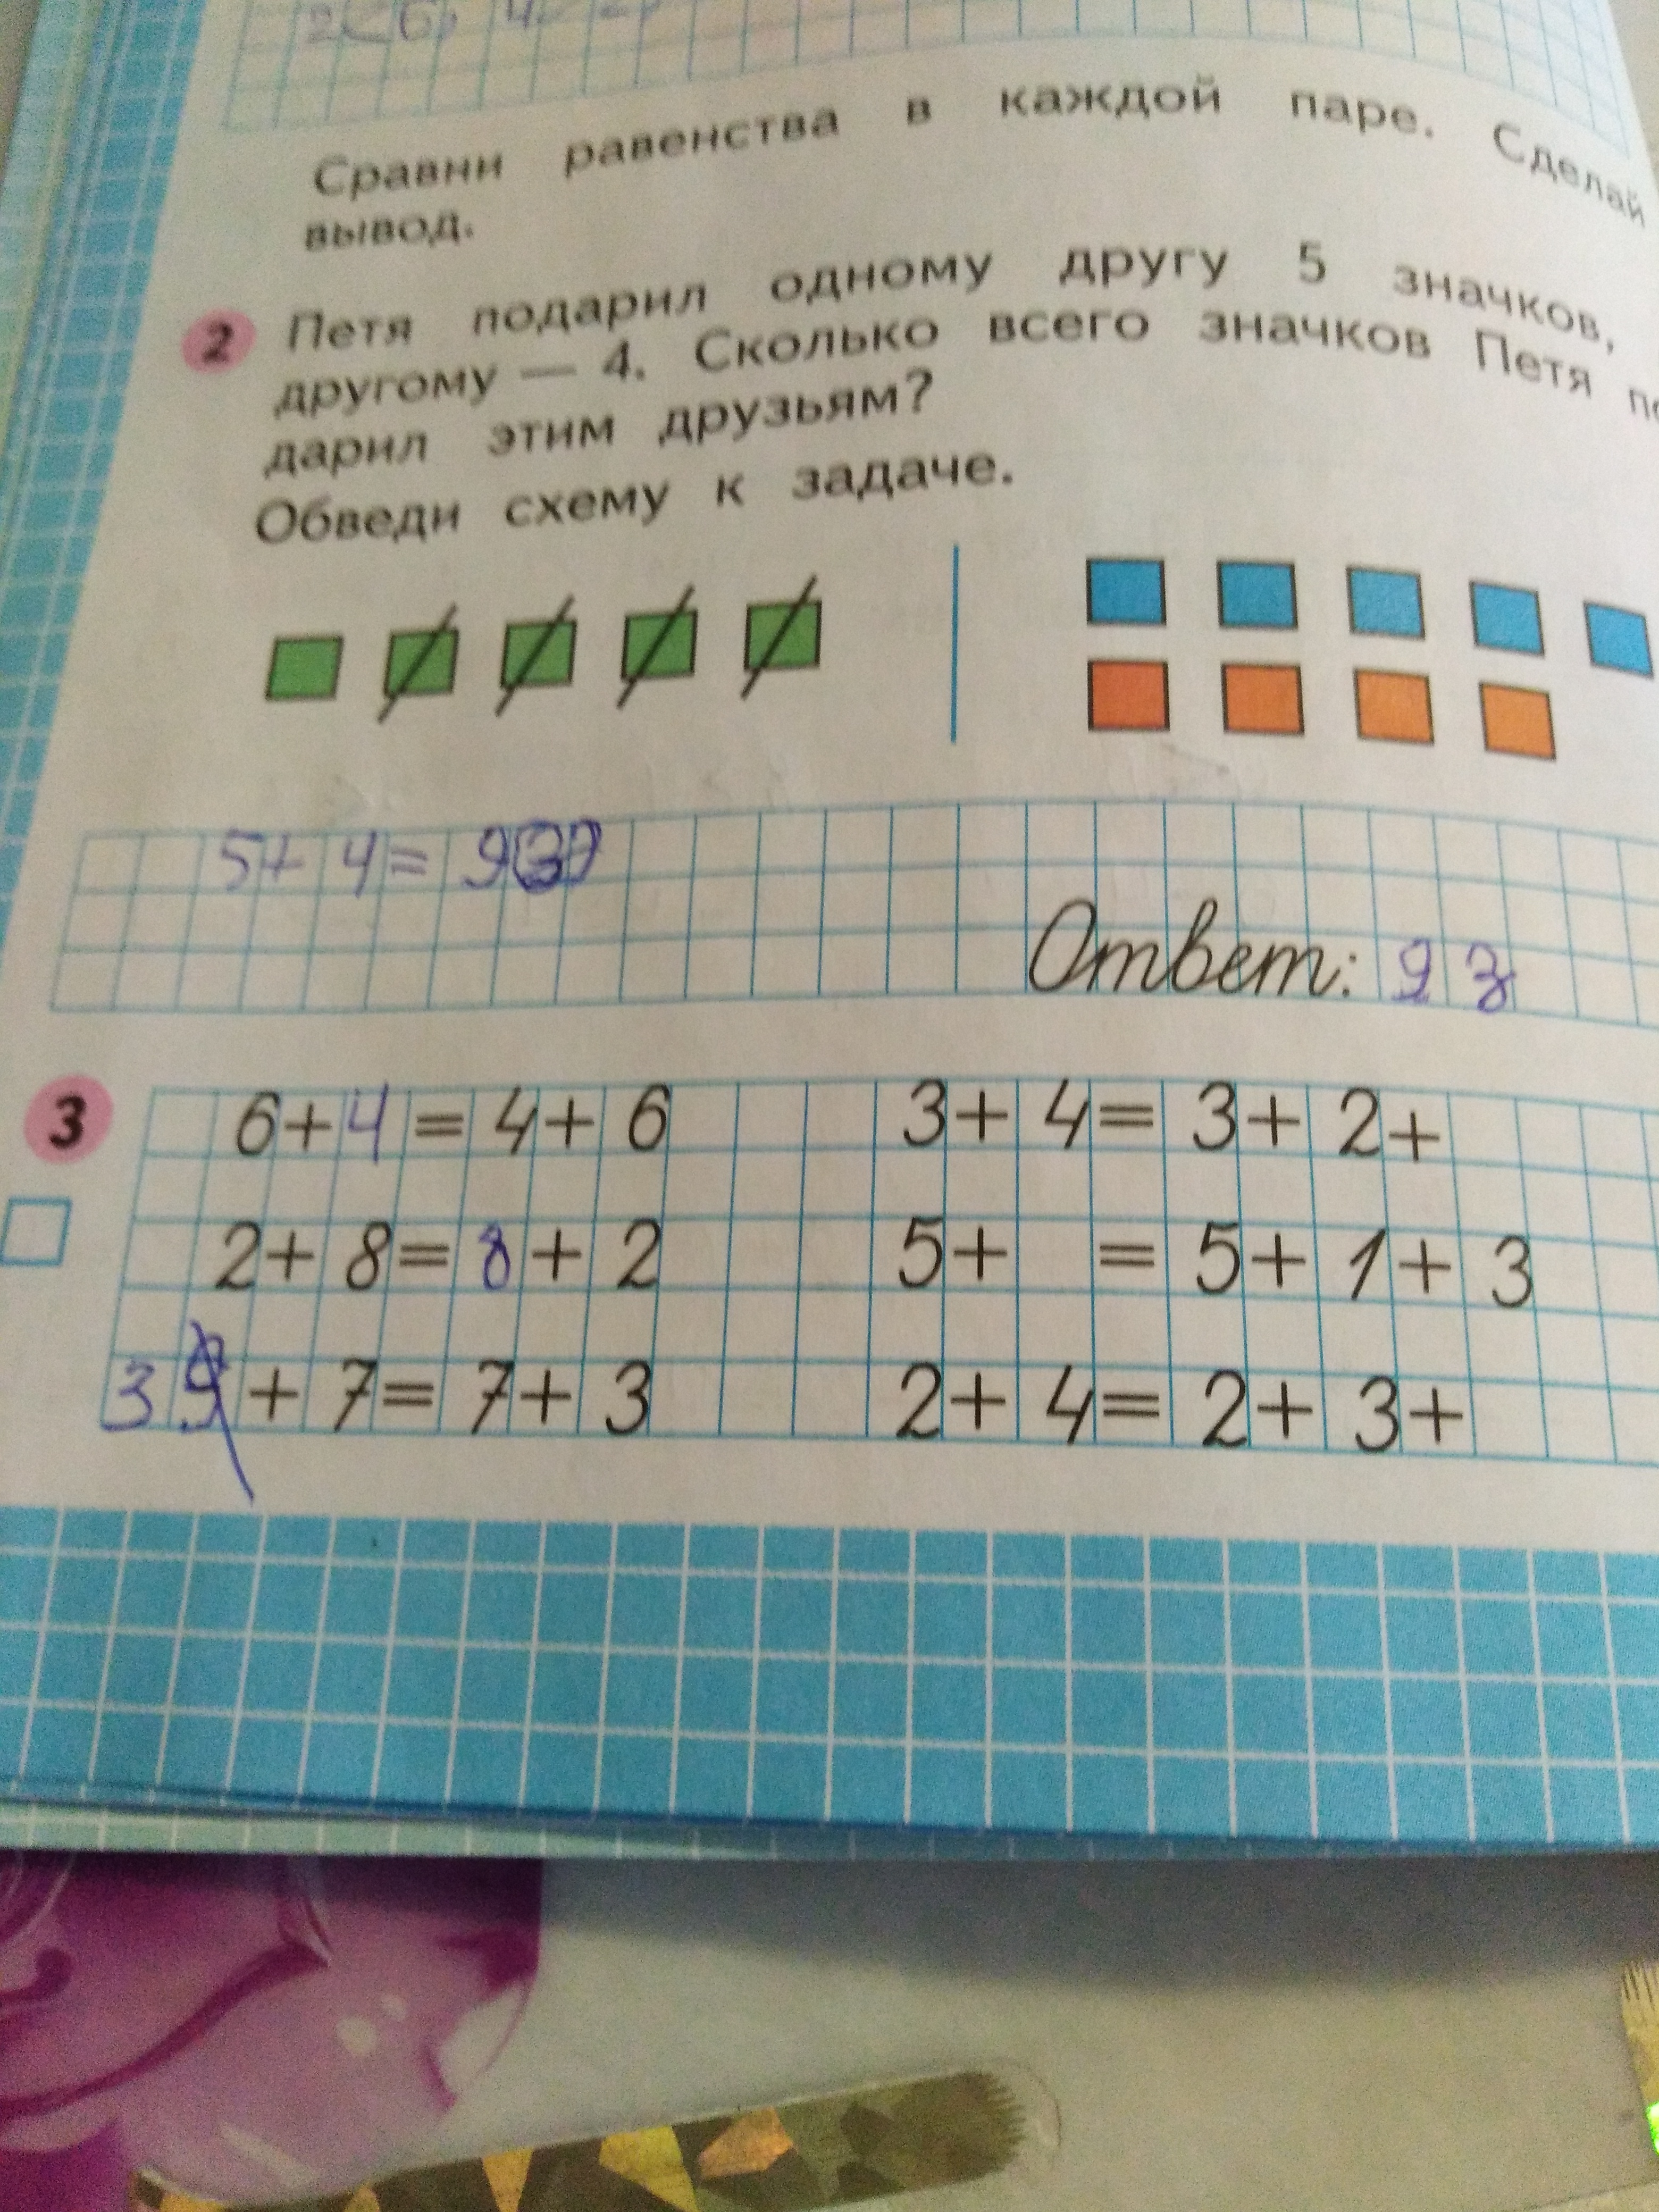 Сравни равенства в каждой паре. Сделай
вывод.
2 Петя подарил одному другу 5 значков,
другому — 4. Сколько всего значков Петя по
дарил этим друзьям?
Обведи схему к задаче.
5+ 4= 9(з)
Ответ: 9 з
3 6+4=4+6 3+4=3+2+
2+8=8+2 5+ =5+1+3
3 +7=7+3 2+4=2+3+